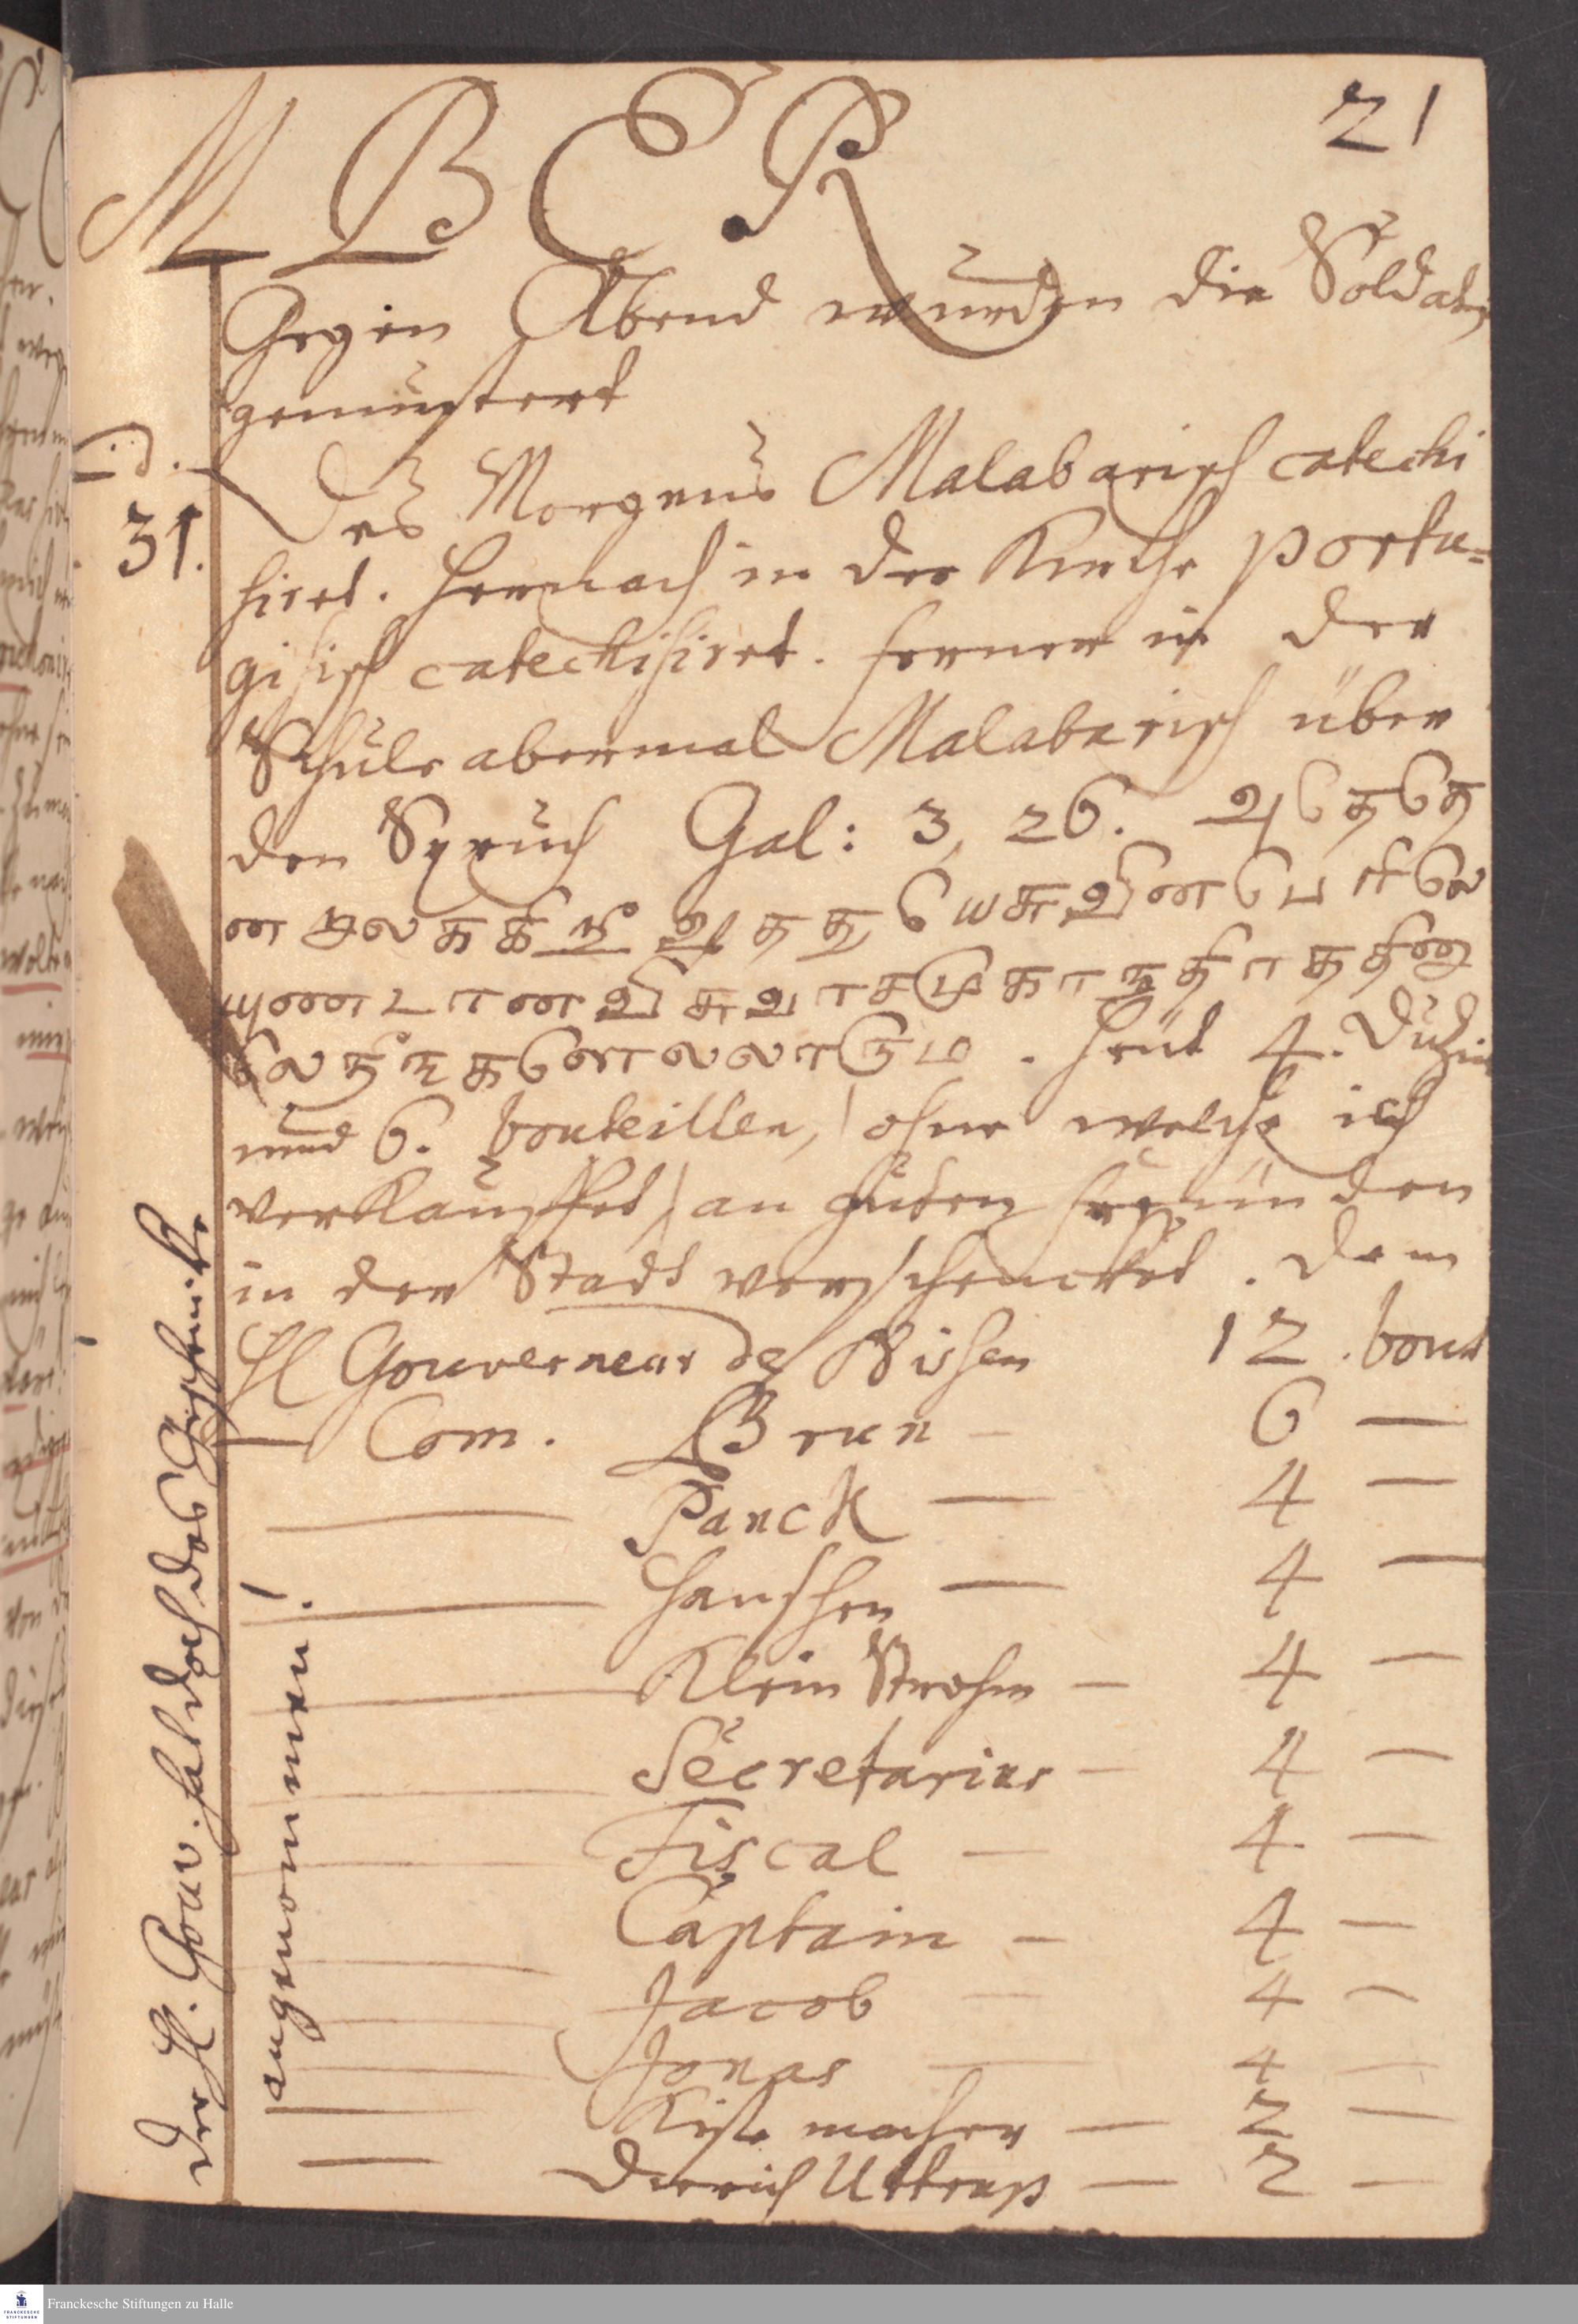 MBER
21
Gegen Abend wurden die Soldaten
gemustert
d.
31.
Des Morgens Malabarisch catechi
siret. Hernach in der Kirche portu-
gisisch catechisiret. ferner in der
Schule abermal Malabarisch über
den Spruch Gal: 3, 26.
Heut 4. Duzin
und 6. bouteillen, ohne welche ich
verkauffet) an guten freunden
in der Stadt verschencket. Dem
H Gouverneur de Nissen 12. bout
— Com. Brun — 6 —
— Panck — 4 —
— Hanssen — 4 —
— Klein Strohm — 4 —
— Secretarius — 4 —
— Fiscal — 4 —
— Captain — 4 —
— Jacob — 4 —
— Jonas — 4 —
— Kiste macher — 2 —
— Dierich Uttrup — 2 —
Der H. Gouv. hat doch das Geschencke
angenommen!
Franckesche Stiftungen zu Halle